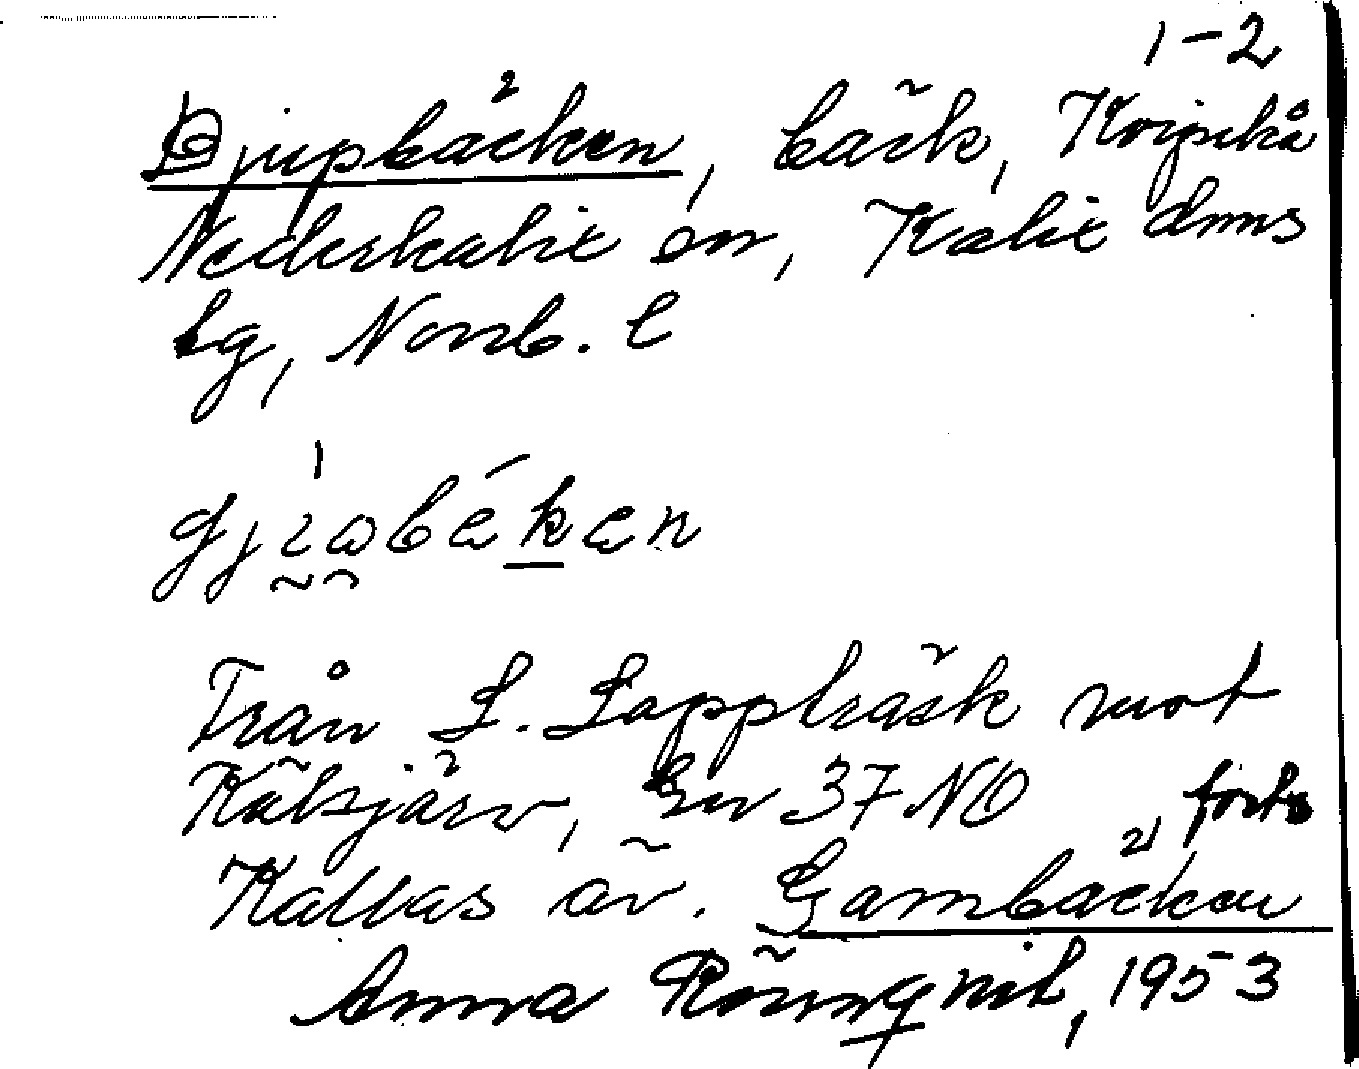 1-2
Djupbäcken, bäck, Kvijokå
Nederkalix sn, Kalix dmns
lg, Norrb. l
Från L. Lappträsk mot
Kälsjärv, Gr 37 NO forts
Kallas äv. Gambäcken
Anna Rönnqvist, 1953